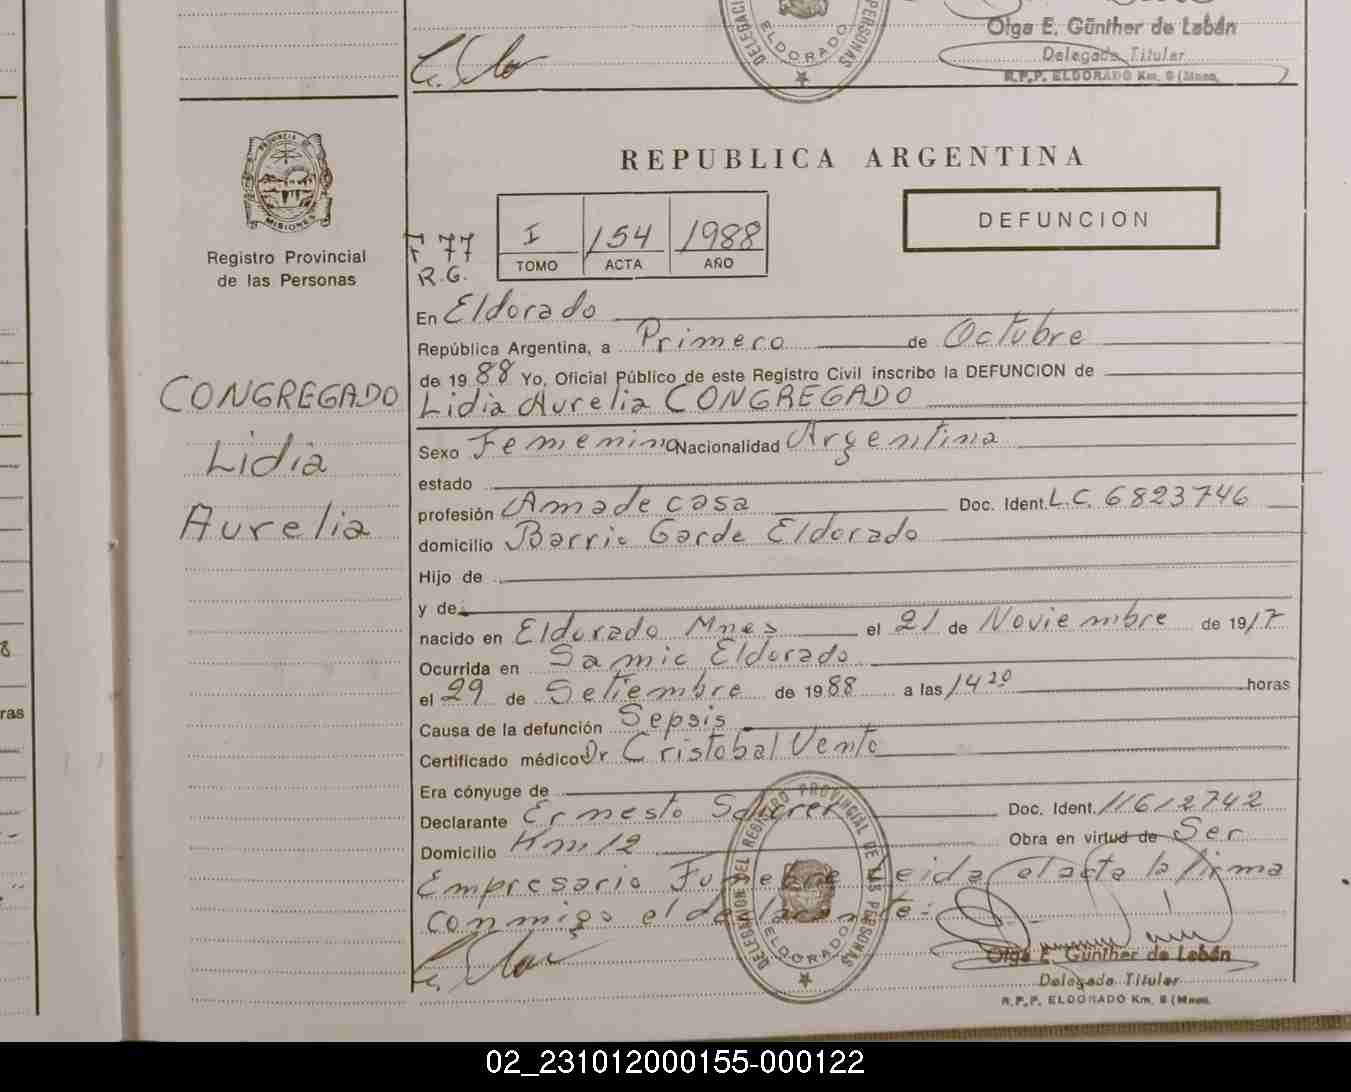 DELEGACI
ELDORADO
PERSONAS
Olga E. Günther de Labán
Delegada Titular
R.P.P. ELDORADO Km. 9 (Mnes.
PROVINCIA DE
MISIONES
Registro Provincial
de las Personas
REPUBLICA ARGENTINA
F 77
R.G.
I 154 1988
TOMO ACTA AÑO
DEFUNCION
En Eldorado
República Argentina, a Primero de Octubre
de 1988 Yo, Oficial Público de este Registro Civil inscribo la DEFUNCION de
CONGREGADO
Lidia
Aurelia
Lidia Aurelia CONGREGADO
Sexo Femenino Nacionalidad Argentina
estado
profesión Ama de casa Doc. Ident. L.C. 6823746
domicilio Barrio Garde Eldorado
Hijo de
y de
nacido en Eldorado Mnes el 21 de Noviembre de 1917
Ocurrida en Samic Eldorado
el 29 de Setiembre de 1988 a las 14 20 horas
Causa de la defunción Sepsis
Certificado médico Dr Cristobal Vento
Era cónyuge de
Declarante Ernesto Doc. Ident. 11612742
Domicilio Km 12 Obra en virtud de Ser
Empresario Funebre leida el acta la firma
conmigo el declarante:
DELEGACION DEL REGISTRO PROVINCIAL DE LAS PERSONAS
ELDORADO
Olga E. Günther de Labán
Delegada Titular
R.P.P. ELDORADO Km. 9 (Mnes.
8
ras
02_231012000155-000122